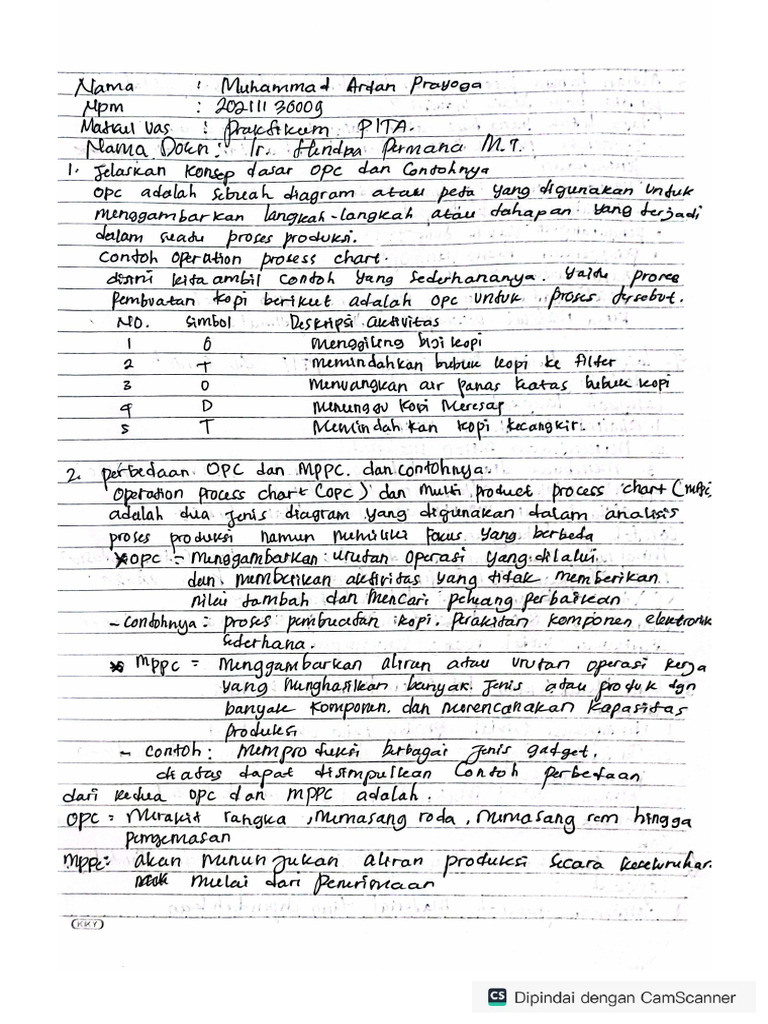 Nama : Muhammad Ardan Prayoga
Npm : 202111 36009
Matkul Uas : Praktikum PITA.
Nama Dosen : Ir. Hendra Permana M.T.
1. Jelaskan Konsep dasar OPC dan Contohnya
OPC adalah sebuah diagram atau peta yang digunakan untuk
menggambarkan langkah-langkah atau tahapan yang terjadi
dalam suatu proses produksi.
Contoh operation process chart.
disini kita ambil contoh yang sederhananya. yaitu proses
pembuatan kopi berikut adalah OPC untuk proses tersebut.
NO. Simbol Deskripsi aktivitas
1 O Menggiling biji kopi
2 T Memindahkan bubuk kopi ke filter
3 O Menuangkan air panas keatas bubuk kopi
4 D Menunggu kopi Meresap
5 T Memindahkan kopi kecangkir.
2. perbedaan OPC dan MPPC. dan contohnya.
Operation process chart (OPC) dan Multi product process chart (MPPC
adalah dua jenis diagram yang digunakan dalam analisis
proses produksi namun memiliki focus yang berbeda
* OPC = Menggambarkan urutan operasi yang dilalui
dan memberikan aktivitas yang tidak memberikan
nilai tambah dan mencari peluang perbaikan
- Contohnya : proses pembuatan kopi, Perakitan komponen elektronik
sederhana.
* MPPC = Menggambarkan aliran atau urutan operasi kerja
yang menghasilkan banyak jenis atau produk dgn
banyak komponen. dan merencanakan kapasitas
produksi
- Contoh : memproduksi berbagai jenis gadget.
diatas dapat disimpulkan Contoh perbedaan
dari kedua OPC dan MPPC adalah.
OPC = Merakit rangka, Memasang roda, Memasang rem hingga
pengemasan
MPPC: akan menunjukan aliran produksi secara keseluruhan
mulai dari penerimaan
KKY
CS Dipindai dengan CamScanner